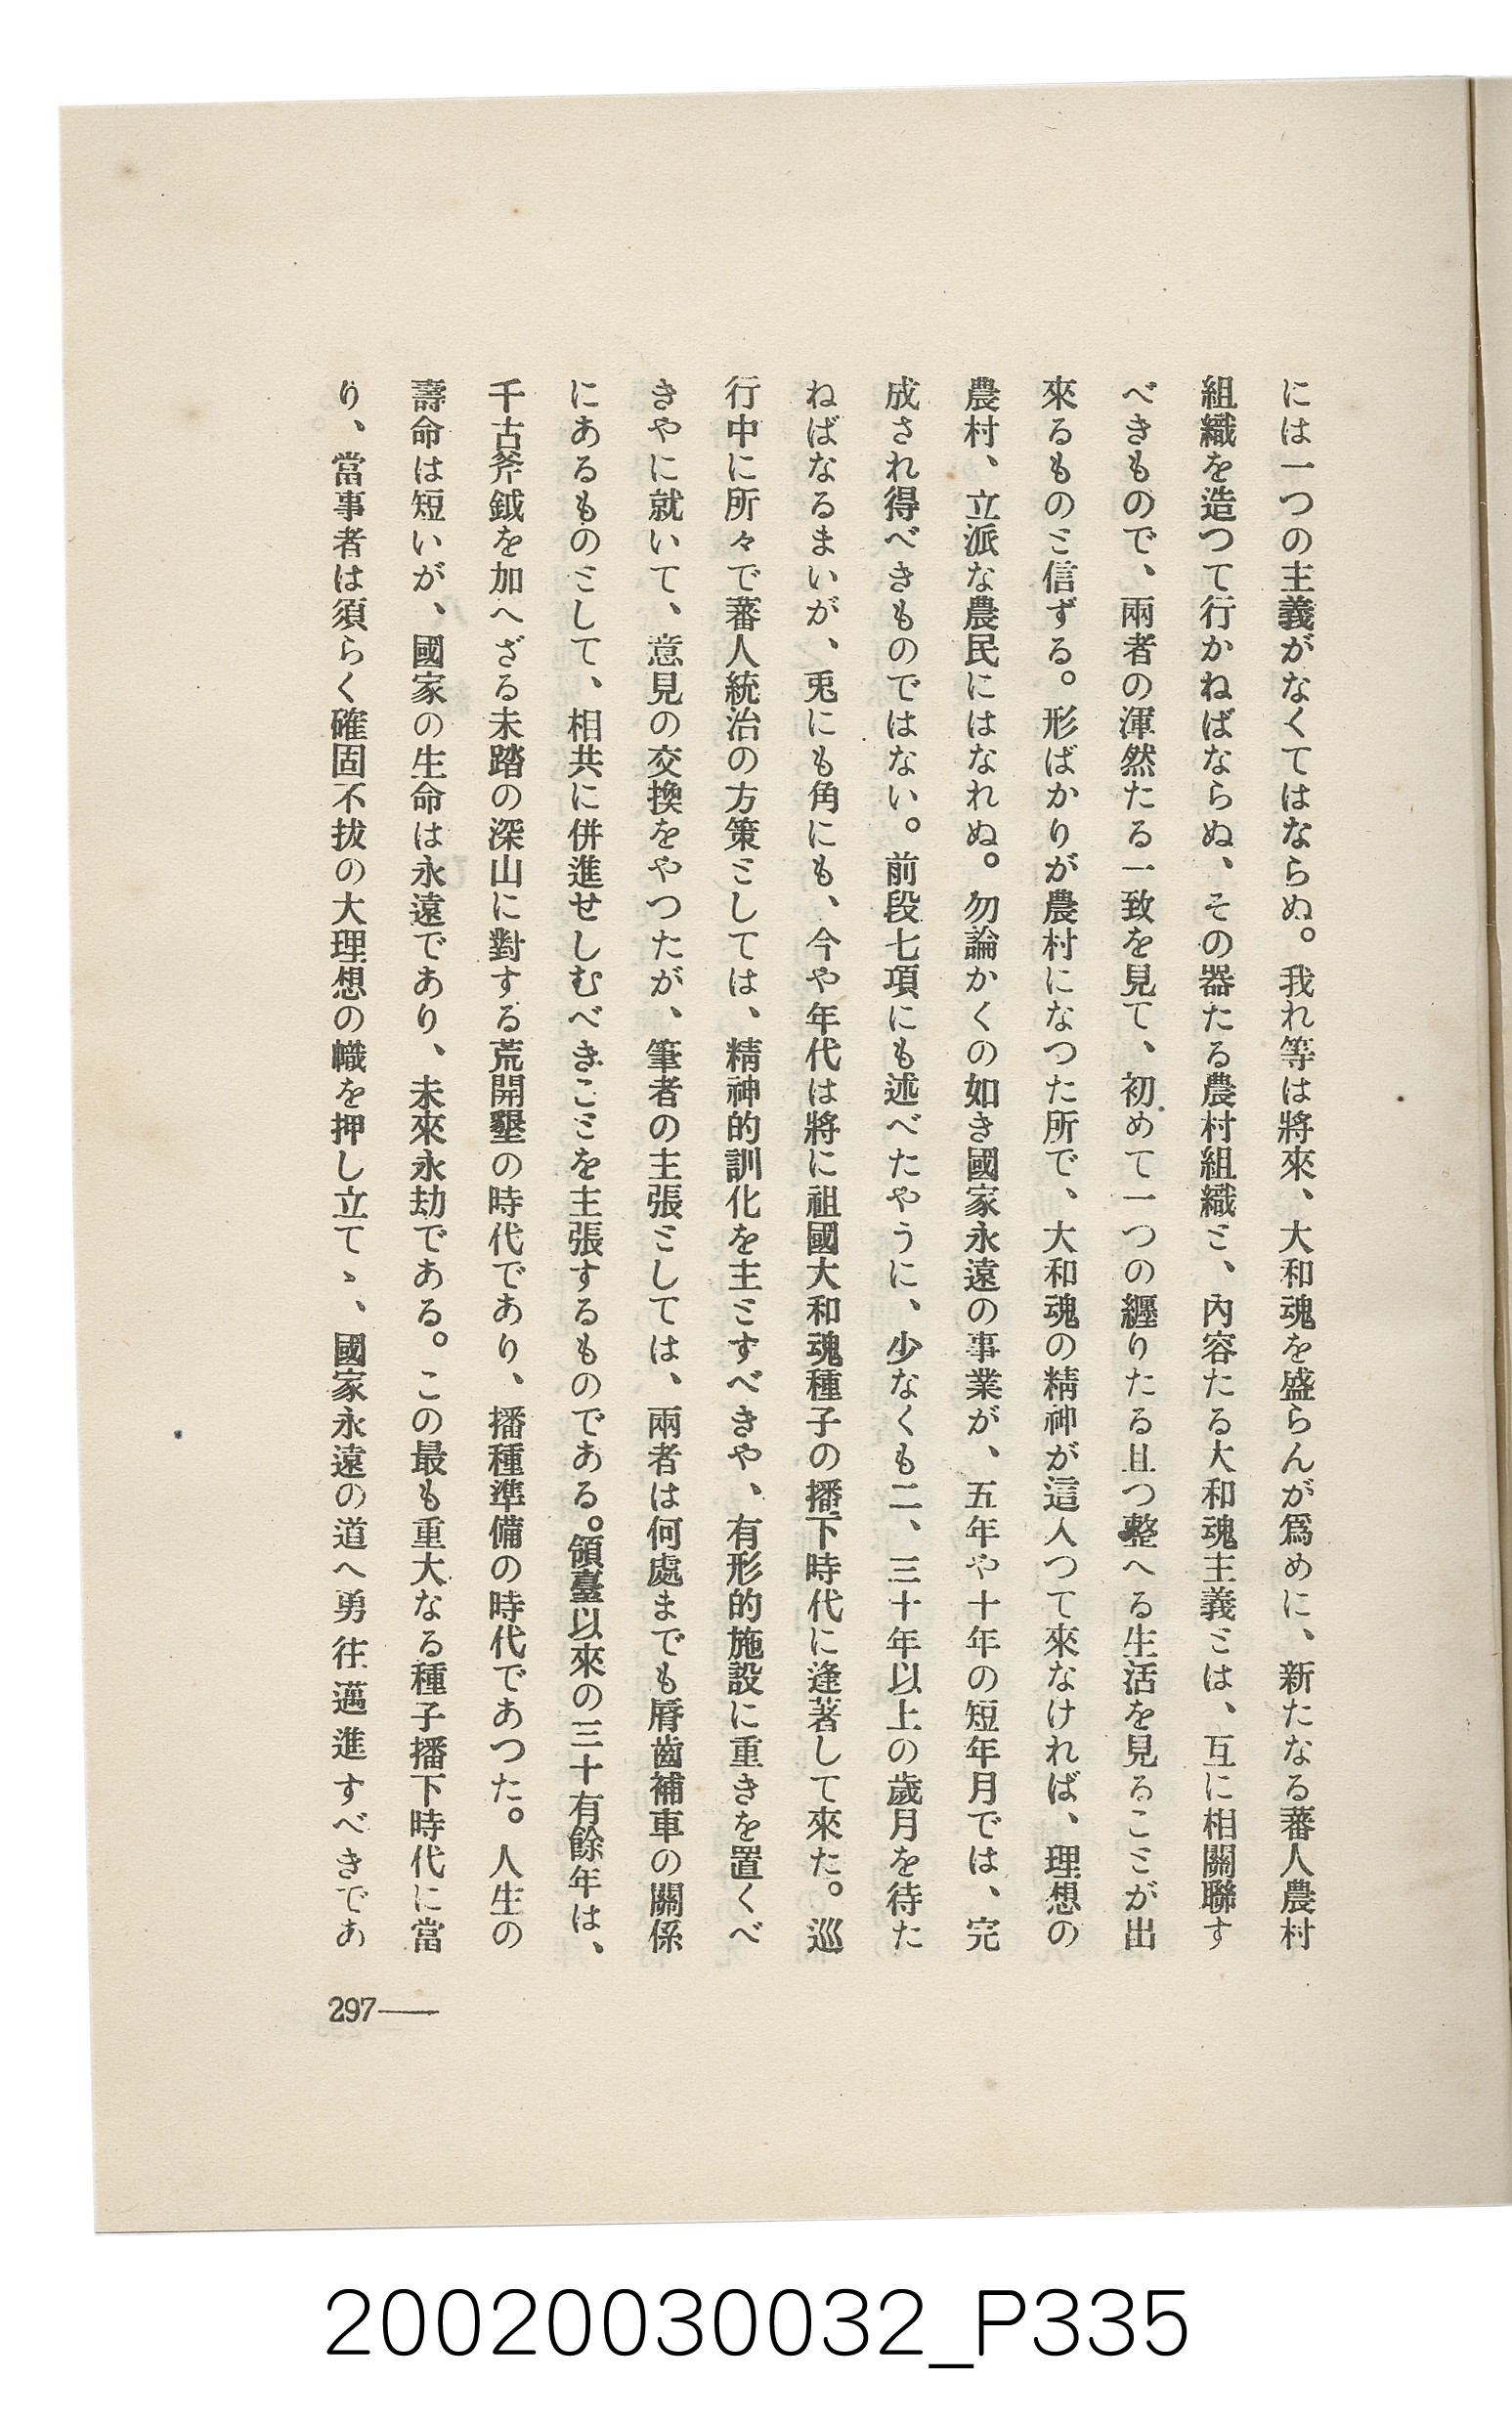 には一つの主義がなくてはならぬ。我れ等は將來、大和魂を盛らんが爲めに、新たなる蕃人農村
組織を造つて行かねばならぬ、その器たる農村組織ミ、內容たる大和魂主義ミは、互に相關聯す
べきもので、兩者の渾然たる一致を見て、初めて一つの纒りたる且つ整へる生活を見るこミが出
來るものミ信ずる。形ばかりが農村になつた所で、大和魂の精神が這入つて來なければ、理想の
農村、立派な農民にはなれぬ。勿論かくの如き國家永遠の事業が、五年や十年の短年月では、完
成され得べきものではない。前段七項にも述べたやうに、少なくも二、三十年以上の歲月を待た
ねばなるまいが、兎にも角にも、今や年代は將に祖國大和魂種子の播下時代に逢著して來た。巡
行中に所々で蕃人統治の方策ミしては、精神的訓化を主ミすべきや、有形的施設に重きを置くべ
きやに就いて、意見の交換をやつたが、筆者の主張ミしては、兩者は何處までも脣齒補車の關係
にあるものミして、相共に併進せしむべきこミを主張するものである。領臺以來の三十有餘年は、
千古斧鉞を加へざる未踏の深山に對する荒開墾の時代であり、播種準備の時代であつた。人生の
壽命は短いが、國家の生命は永遠であり、未來永劫である。この最も重大なる種子播下時代に當
り、當事者は須らく確固不拔の大理想の幟を押し立てゝ、國家永遠の道へ勇往邁進すべきであ
297―
20020030032_P335